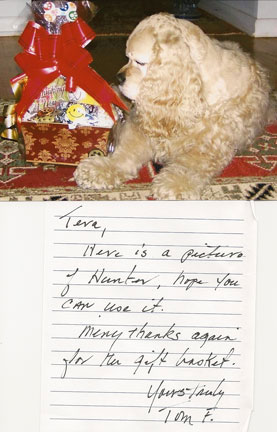 Tera,
Here is a picture
of Hunter, hope you
can use it.
Meny thanks again
for the gift basket.
Yours truly
Tom F.